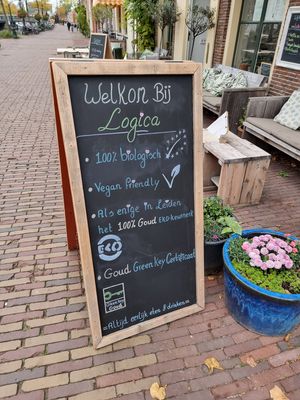 Welkom Bij
Logica
• 100% biologisch
• Vegan Friendly
• Als enige in Leiden
het 100% Goud EKO keurmerk
EKO
• Goud Green Key Certificaat
Green Key
Goud
= Altijd eerlijk eten & drinken =